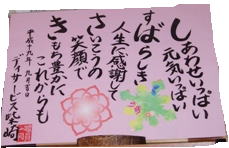 しあわせいっぱい
元気いっぱい
すばらしき
人生に感謝して
さいこうの
笑顔で
これからも
きもち豊かに
平成十九年 九月吉日
デイサービス